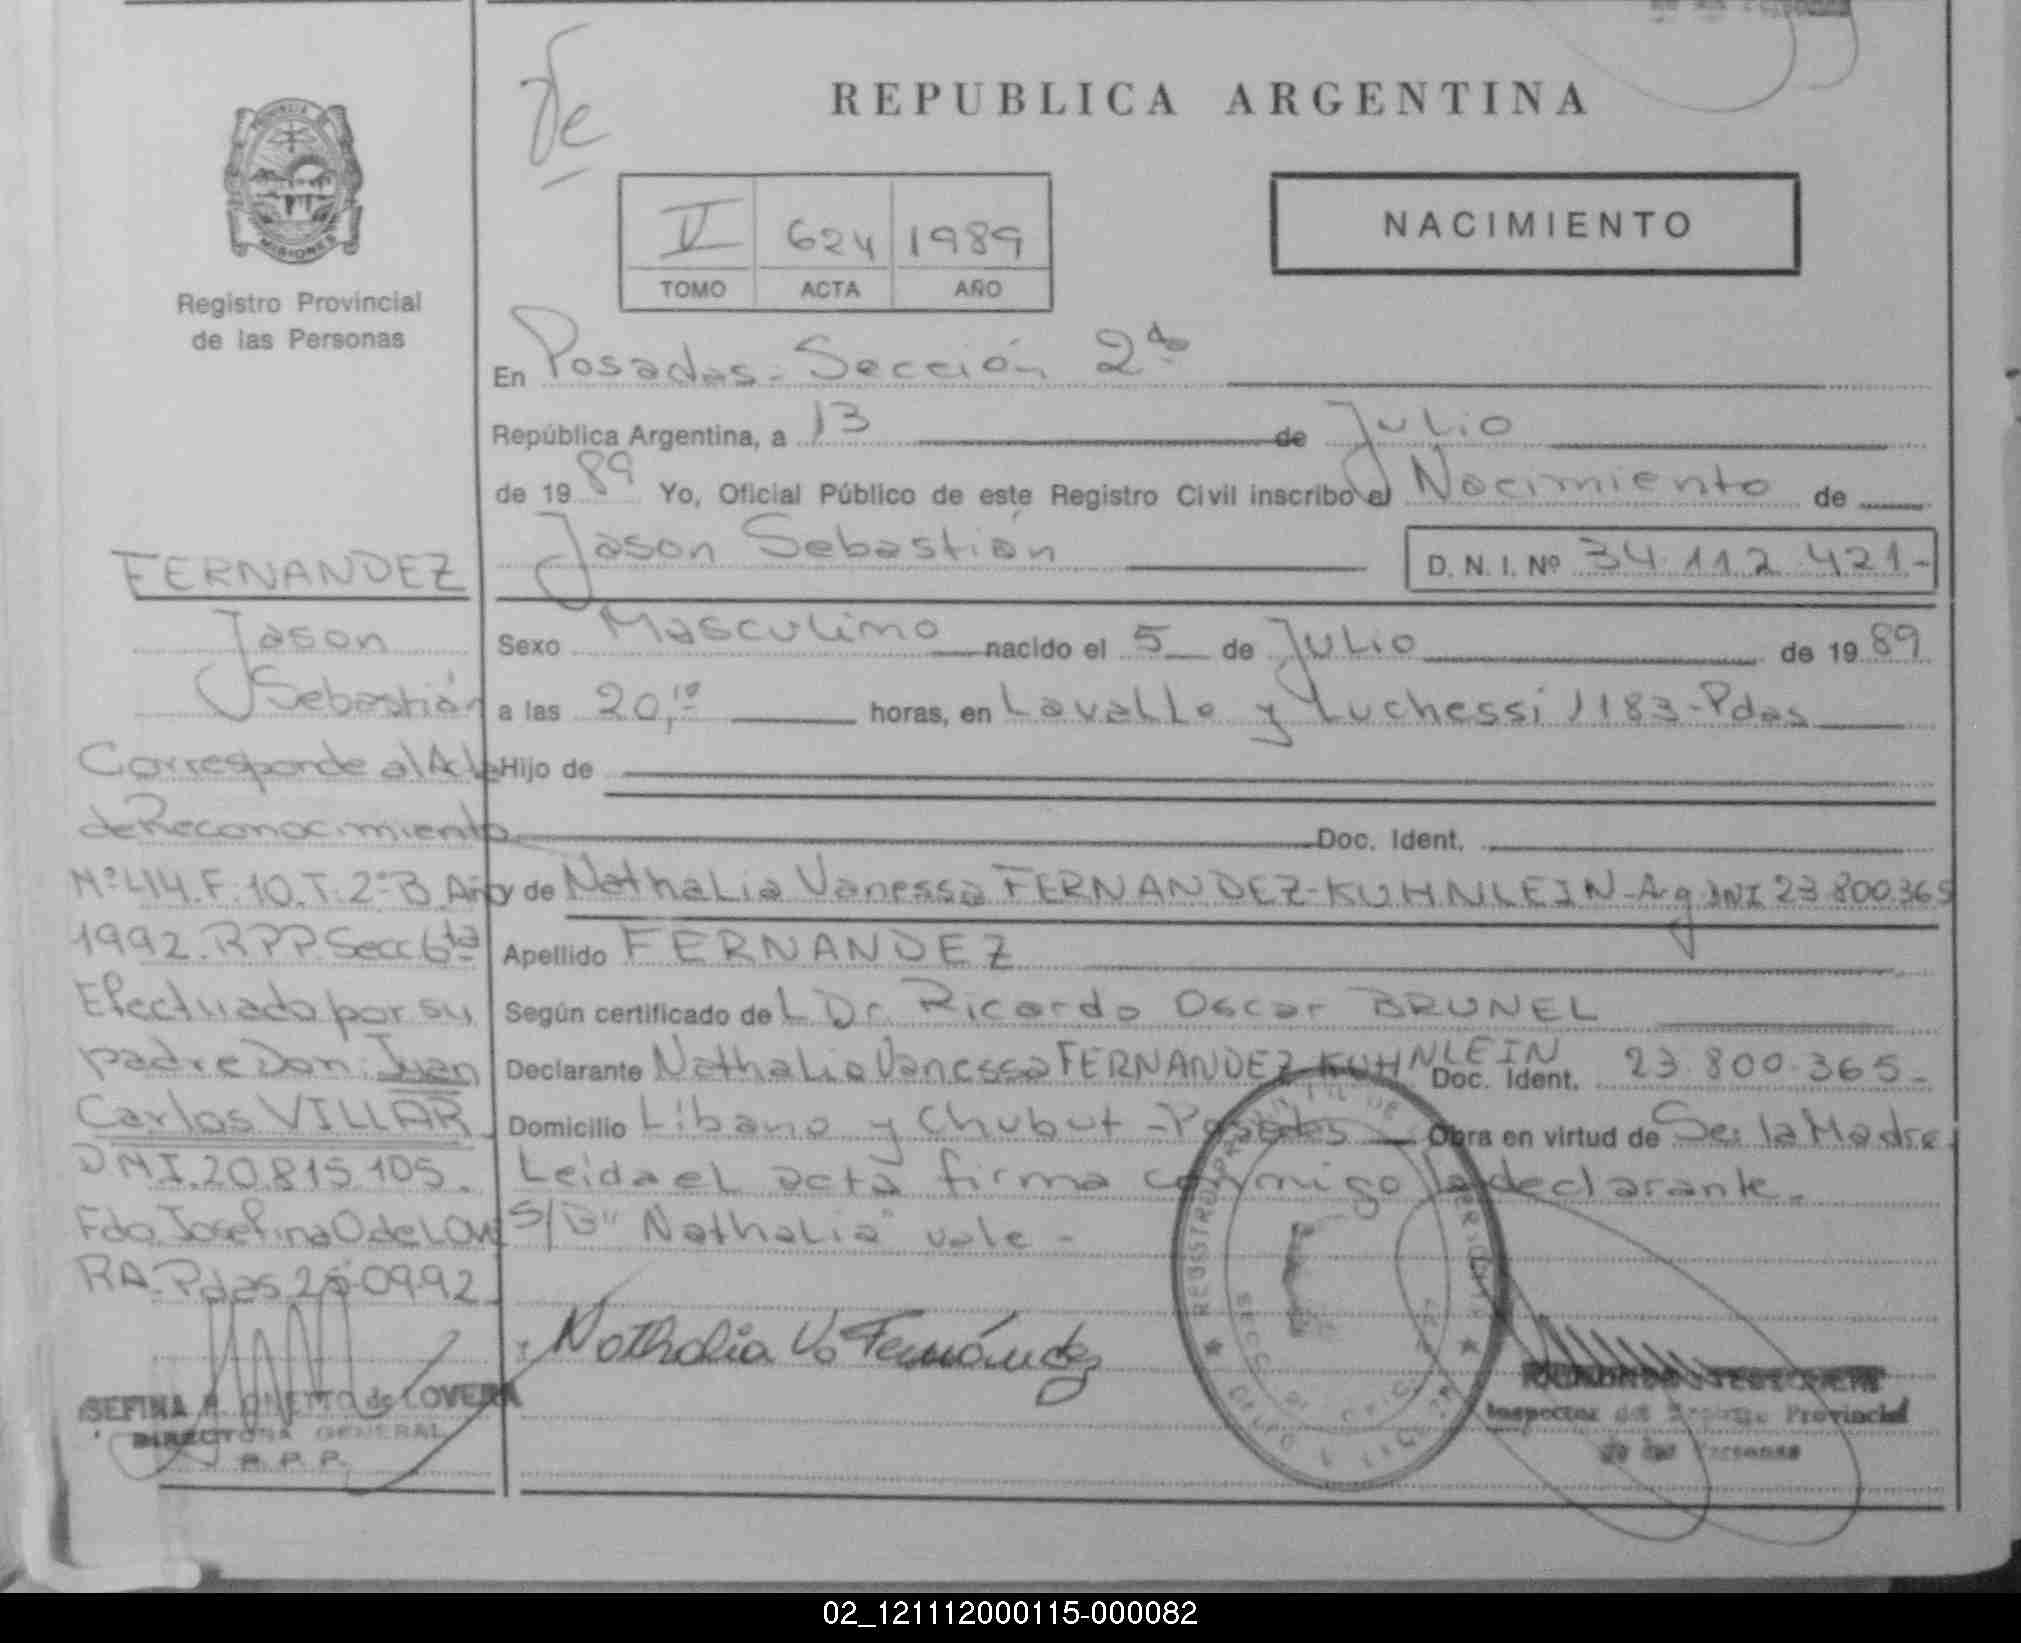 REPUBLICA ARGENTINA
NACIMIENTO
V 624 1989
TOMO ACTA AÑO
Registro Provincial
de las Personas
MISIONES
En Posadas - Sección 2da
República Argentina, a 13 de Julio
de 1989 Yo, Oficial Público de este Registro Civil inscribo el Nacimiento de
Jason Sebastián
D. N. I. Nº 34.112.421-
Sexo Masculino nacido el 5 de Julio de 1989
a las 20,10 horas, en Lavalle y Luchessi 1183-Pdas
Hijo de
Doc. Ident.
y de Nathalia Vanessa FERNANDEZ-KUHNLEIN-Arg DNI 23.800.365
Apellido FERNANDEZ
Según certificado del Dr. Ricardo Oscar BRUNEL
Declarante Nathalia Vanessa FERNANDEZ KUHNLEIN Doc. Ident. 23.800.365-
Domicilio Libano y Chubut - Posadas Obra en virtud de Ser la Madre
Leida el acta firma conmigo la declarante.
S/B "Nathalia" vale -
Nathalia V. Fernández
Inspector del Registro Provincial
de las Personas
FERNANDEZ
Jason
Sebastián
Corresponde al Acta
de Reconocimiento
Nº 414. F. 10. T. 2º B. Año
1992. RPP. Secc 6ta
Efectuado por su
padre Don: Juan
Carlos VILLAR
DNI. 20.815.105.
Fdo. Josefina O de LOVE
RA. Pdas 25-09-92
SEFINA A. ONETTO de LOVERA
DIRECTORA GENERAL
R. P. P.
02_121112000115-000082